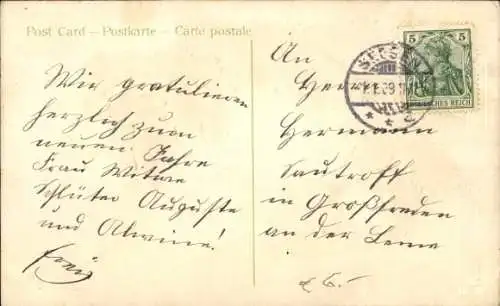 Post Card – Postkarte – Carte postale
Wir gratulieren
herzlich zum
neuen Jahre
Frau Witwe
Schlüter Auguste
und Alwine!
An
Herrn
Hermann
Sautroff
in Großfreden
an der Leine
5
5
DEUTSCHES REICH